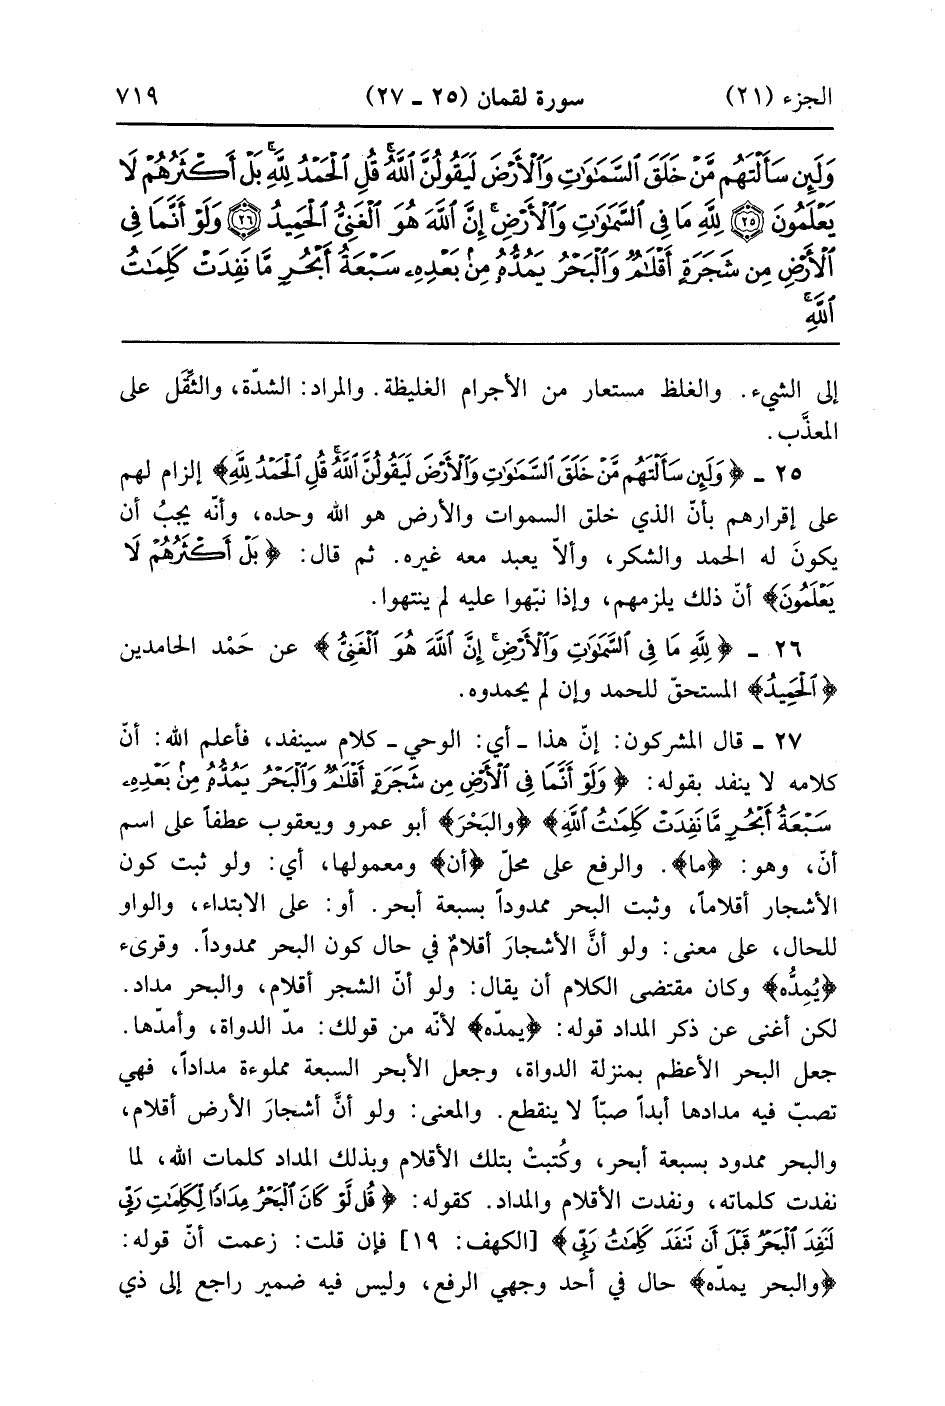 الجزء (٢١) سورة لقمان (٢٥ ـ ٢٧) ٧١٩
وَلَئِن سَأَلْتَهُم مَّنْ خَلَقَ السَّمَٰوَٰتِ وَالْأَرْضَ لَيَقُولُنَّ اللَّهُ ۚ قُلِ الْحَمْدُ لِلَّهِ ۚ بَلْ أَكْثَرُهُمْ لَا
يَعْلَمُونَ ﴿٢٥﴾ لِلَّهِ مَا فِي السَّمَٰوَٰتِ وَالْأَرْضِ ۚ إِنَّ اللَّهَ هُوَ الْغَنِيُّ الْحَمِيدُ ﴿٢٦﴾ وَلَوْ أَنَّمَا فِي
الْأَرْضِ مِن شَجَرَةٍ أَقْلَٰمٌ وَالْبَحْرُ يَمُدُّهُ مِنۢ بَعْدِهِ سَبْعَةُ أَبْحُرٍ مَّا نَفِدَتْ كَلِمَٰتُ
اللَّهِ ۚ
إلى الشيء. والغلظ مستعار من الأجرام الغليظة. والمراد: الشدّة، والثِّقَل على
المعذَّب.
٢٥ ـ ﴿وَلَئِن سَأَلْتَهُم مَّنْ خَلَقَ السَّمَٰوَٰتِ وَالْأَرْضَ لَيَقُولُنَّ اللَّهُ ۚ قُلِ الْحَمْدُ لِلَّهِ﴾ إلزام لهم
على إقرارهم بأنّ الذي خلق السموات والأرض هو الله وحده، وأنّه يجبُ أن
يكونَ له الحمد والشكر، وألاّ يعبد معه غيره. ثم قال: ﴿بَلْ أَكْثَرُهُمْ لَا
يَعْلَمُونَ﴾ أنّ ذلك يلزمهم، وإذا نبّهوا عليه لم ينتهوا.
٢٦ ـ ﴿لِلَّهِ مَا فِي السَّمَٰوَٰتِ وَالْأَرْضِ ۚ إِنَّ اللَّهَ هُوَ الْغَنِيُّ﴾ عن حَمْد الحامدين
﴿الْحَمِيدُ﴾ المستحقّ للحمد وإن لم يحمدوه.
٢٧ ـ قال المشركون: إنّ هذا ـ أي: الوحي ـ كلام سينفد، فأعلم الله: أنّ
كلامه لا ينفد بقوله: ﴿وَلَوْ أَنَّمَا فِي الْأَرْضِ مِن شَجَرَةٍ أَقْلَٰمٌ وَالْبَحْرُ يَمُدُّهُ مِنۢ بَعْدِهِ
سَبْعَةُ أَبْحُرٍ مَّا نَفِدَتْ كَلِمَٰتُ اللَّهِ﴾ ﴿والبَحْرَ﴾ أبو عمرو ويعقوب عطفاً على اسم
أنّ، وهو: ﴿ما﴾. والرفع على محلّ ﴿أن﴾ ومعمولها، أي: ولو ثبت كون
الأشجار أقلاماً، وثبت البحر ممدوداً بسبعة أبحر. أو: على الابتداء، والواو
للحال، على معنى: ولو أنَّ الأشجارَ أقلامٌ في حال كون البحر ممدوداً. وقرىء
﴿يُمِدُّه﴾ وكان مقتضى الكلام أن يقال: ولو أنّ الشجر أقلام، والبحر مداد.
لكن أغنى عن ذكر المداد قوله: ﴿يمدّه﴾ لأنّه من قولك: مدّ الدواة، وأمدّها.
جعل البحر الأعظم بمنزلة الدواة، وجعل الأبحر السبعة مملوءة مداداً، فهي
تصبّ فيه مدادها أبداً صبّاً لا ينقطع. والمعنى: ولو أنَّ أشجارَ الأرض أقلام،
والبحر ممدود بسبعة أبحر، وكُتبتْ بتلك الأقلام وبذلك المداد كلمات الله، لما
نفدت كلماته، ونفدت الأقلام والمداد. كقوله: ﴿قُل لَّوْ كَانَ الْبَحْرُ مِدَادًا لِّكَلِمَٰتِ رَبِّي
لَنَفِدَ الْبَحْرُ قَبْلَ أَن تَنفَدَ كَلِمَٰتُ رَبِّي﴾ [الكهف: ١٩] فإن قلت: زعمت أنّ قوله:
﴿والبحر يمدّه﴾ حال في أحد وجهي الرفع، وليس فيه ضمير راجع إلى ذي